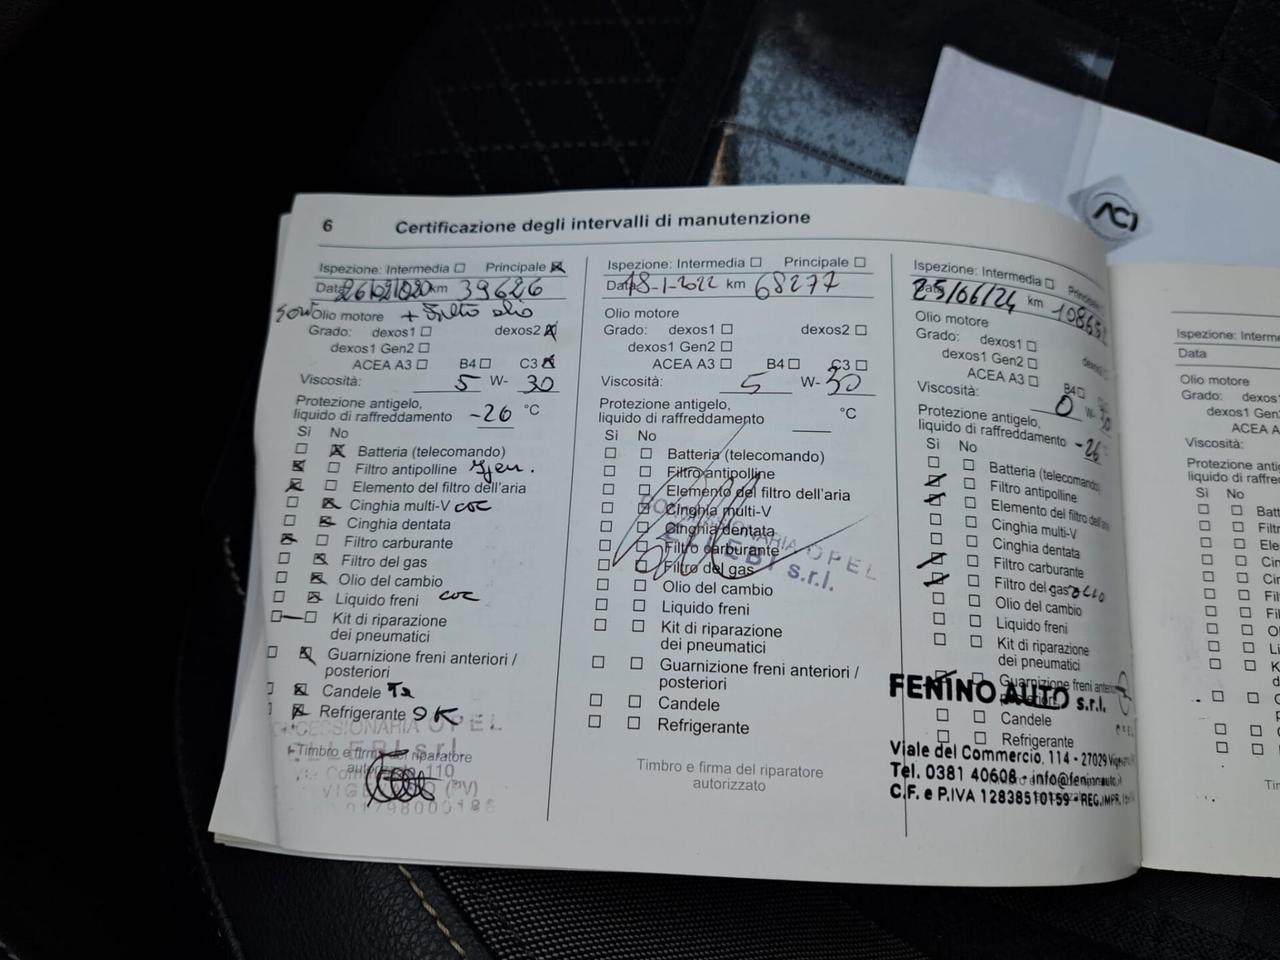 6 Certificazione degli intervalli di manutenzione
Ispezione: Intermedia Principale
Data km 39626
Olio motore + filtro olio
Grado: dexos1 dexos2
dexos1 Gen2
ACEA A3 B4 C3
Viscosità: 5 W- 30
Protezione antigelo,
liquido di raffreddamento -26 °C
Sì No
Batteria (telecomando)
Filtro antipolline
Elemento del filtro dell'aria
Cinghia multi-V
Cinghia dentata
Filtro carburante
Filtro del gas
Olio del cambio
Liquido freni
Kit di riparazione
dei pneumatici
Guarnizione freni anteriori /
posteriori
Candele
Refrigerante OK
CONCESSIONARIA OPEL
Timbro e firma del riparatore
autorizzato
Ispezione: Intermedia Principale
Data 18-1-2022 km 68277
Olio motore
Grado: dexos1 dexos2
dexos1 Gen2
ACEA A3 B4 C3
Viscosità: 5 W- 30
Protezione antigelo,
liquido di raffreddamento °C
Sì No
Batteria (telecomando)
Filtro antipolline
Elemento del filtro dell'aria
Cinghia multi-V
Cinghia dentata
Filtro carburante
Filtro del gas
Olio del cambio
Liquido freni
Kit di riparazione
dei pneumatici
Guarnizione freni anteriori /
posteriori
Candele
Refrigerante
CONCESSIONARIA OPEL
s.r.l.
Timbro e firma del riparatore
autorizzato
Ispezione: Intermedia
Data 25/06/24 km
Olio motore
Grado: dexos1
dexos1 Gen2
ACEA A3 B4
Viscosità: 0 W- 30
Protezione antigelo,
liquido di raffreddamento -26
Sì No
Batteria (telecomando)
Filtro antipolline
Elemento del filtro
Cinghia multi-V
Cinghia dentata
Filtro carburante
Filtro del gas olio
Olio del cambio
Liquido freni
Kit di riparazione
dei pneumatici
Guarnizione freni
FENINO AUTO s.r.l.
Candele
Refrigerante
Viale del Commercio, 114 - 27029
Tel. 0381 40608 - info@feninoauto.it
C.F. e P.IVA 12838510159 - REG.IMPR.
ACI
Data
Olio motore
Grado:
ACEA
Viscosità:
Sì No